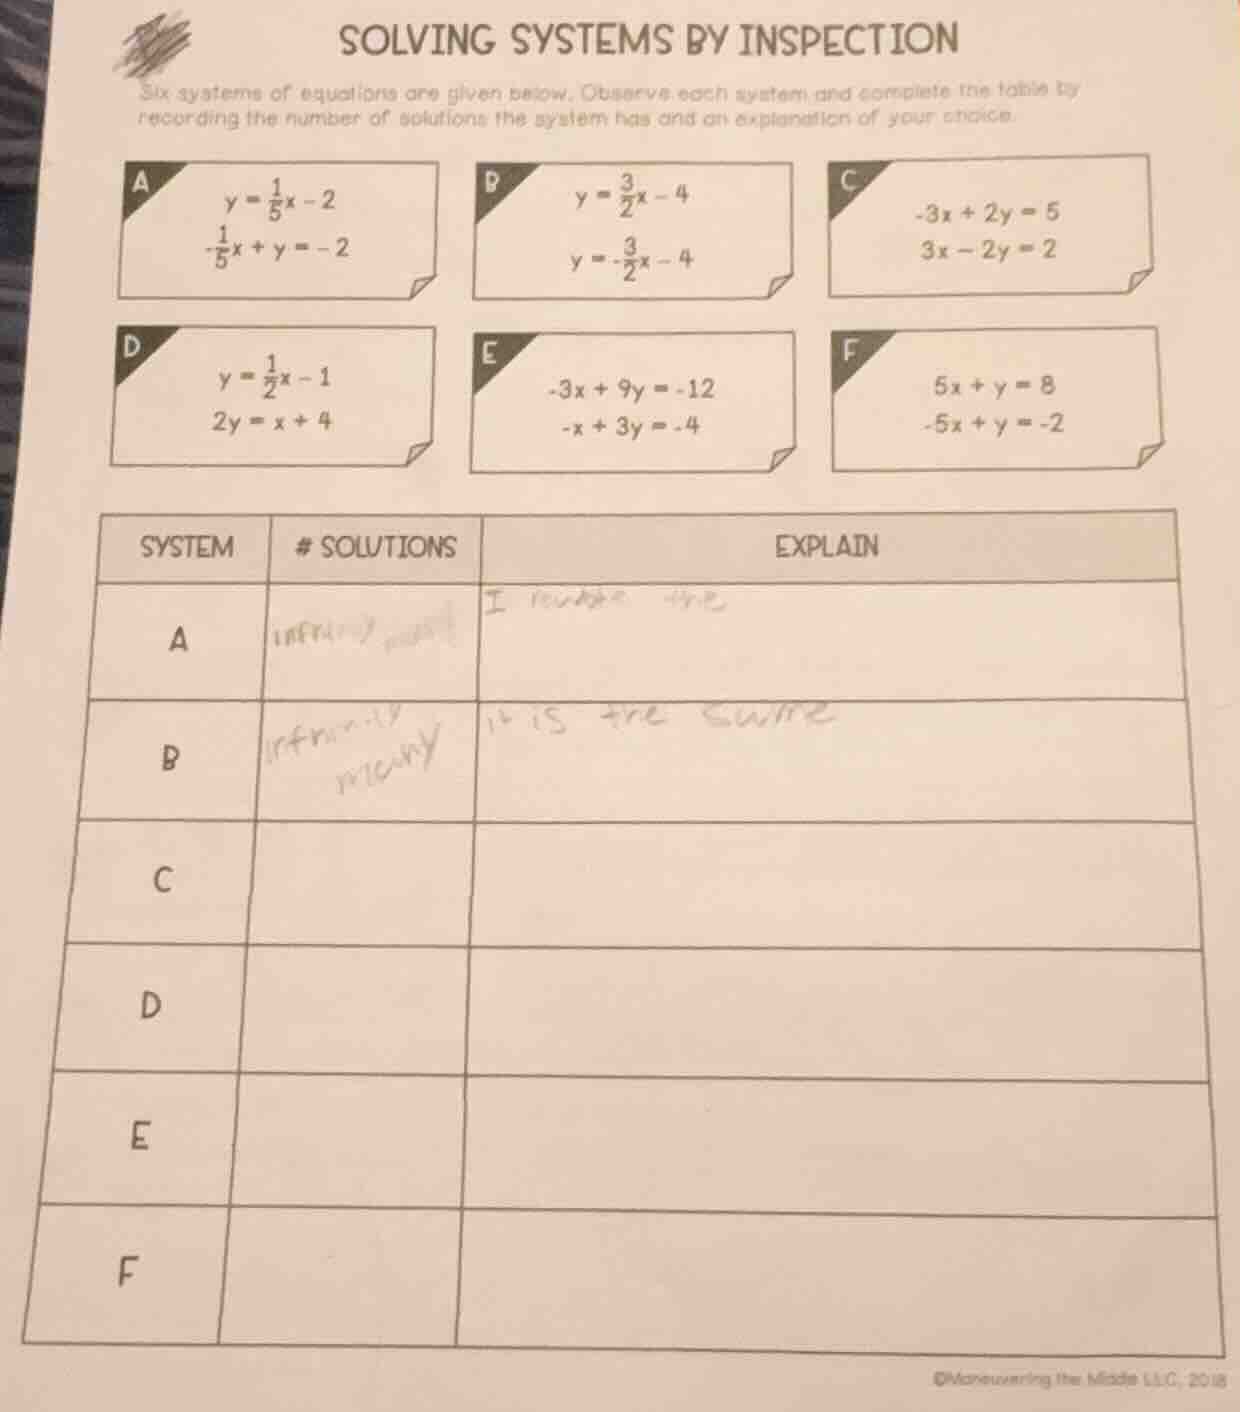 SOLVING SYSTEMS BY INSPECTION
Six systems of equations are given below. Observe each system and complete the table by
recording the number of solutions the system has and an explanation of your choice.
A
y = 1/5x - 2
-1/5x + y = -2
B
y = 3/2x - 4
y = -3/2x - 4
C
-3x + 2y = 5
3x - 2y = 2
D
y = 1/2x - 1
2y = x + 4
E
-3x + 9y = -12
-x + 3y = -4
F
5x + y = 8
-5x + y = -2
SYSTEM # SOLUTIONS EXPLAIN
A I the
B many it is the
C
D
E
F
©Maneuvering the Middle LLC, 2018